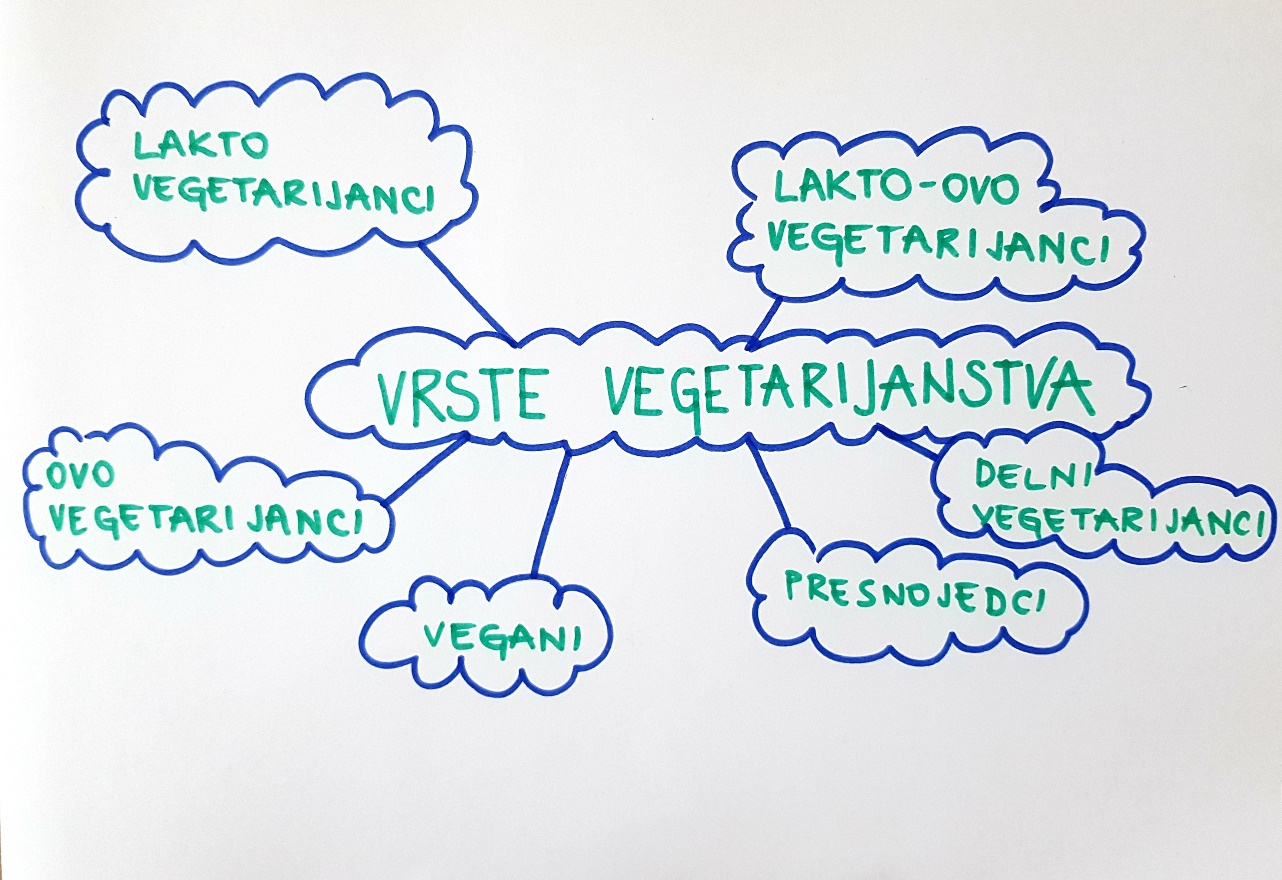 LAKTO
VEGETARIJANCI
LAKTO-OVO
VEGETARIJANCI
VRSTE VEGETARIJANSTVA
OVO
VEGETARIJANCI
DELNI
VEGETARIJANCI
VEGANI
PRESNOJEDCI